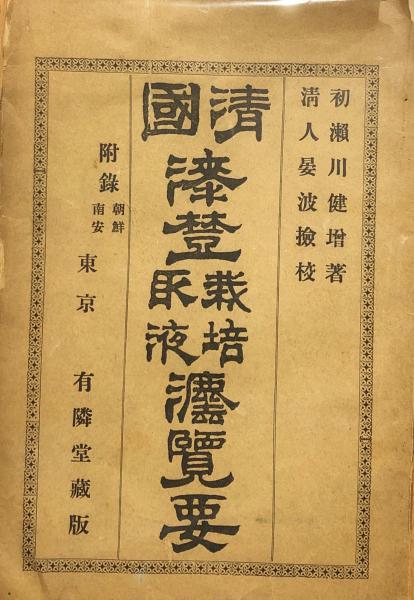 初瀨川健增著
淸人晏波撿校
淸國漆栽培取液灋覽要
附錄 朝鮮 南安
東京 有隣堂藏版